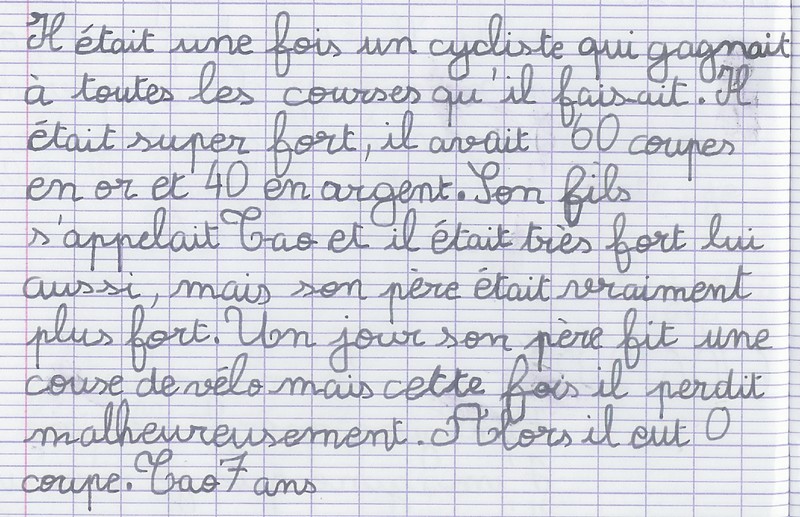 Il était une fois un cycliste qui gagnait
à toutes les courses qu'il faisait. Il
était super fort, il avait 60 coupes
en or et 40 en argent. Son fils
s'appelait Tao et il était très fort lui
aussi, mais son père était vraiment
plus fort. Un jour son père fit une
couse de vélo mais cette fois il perdit
malheureusement. Alors il eut 0
coupe. Tao 7 ans